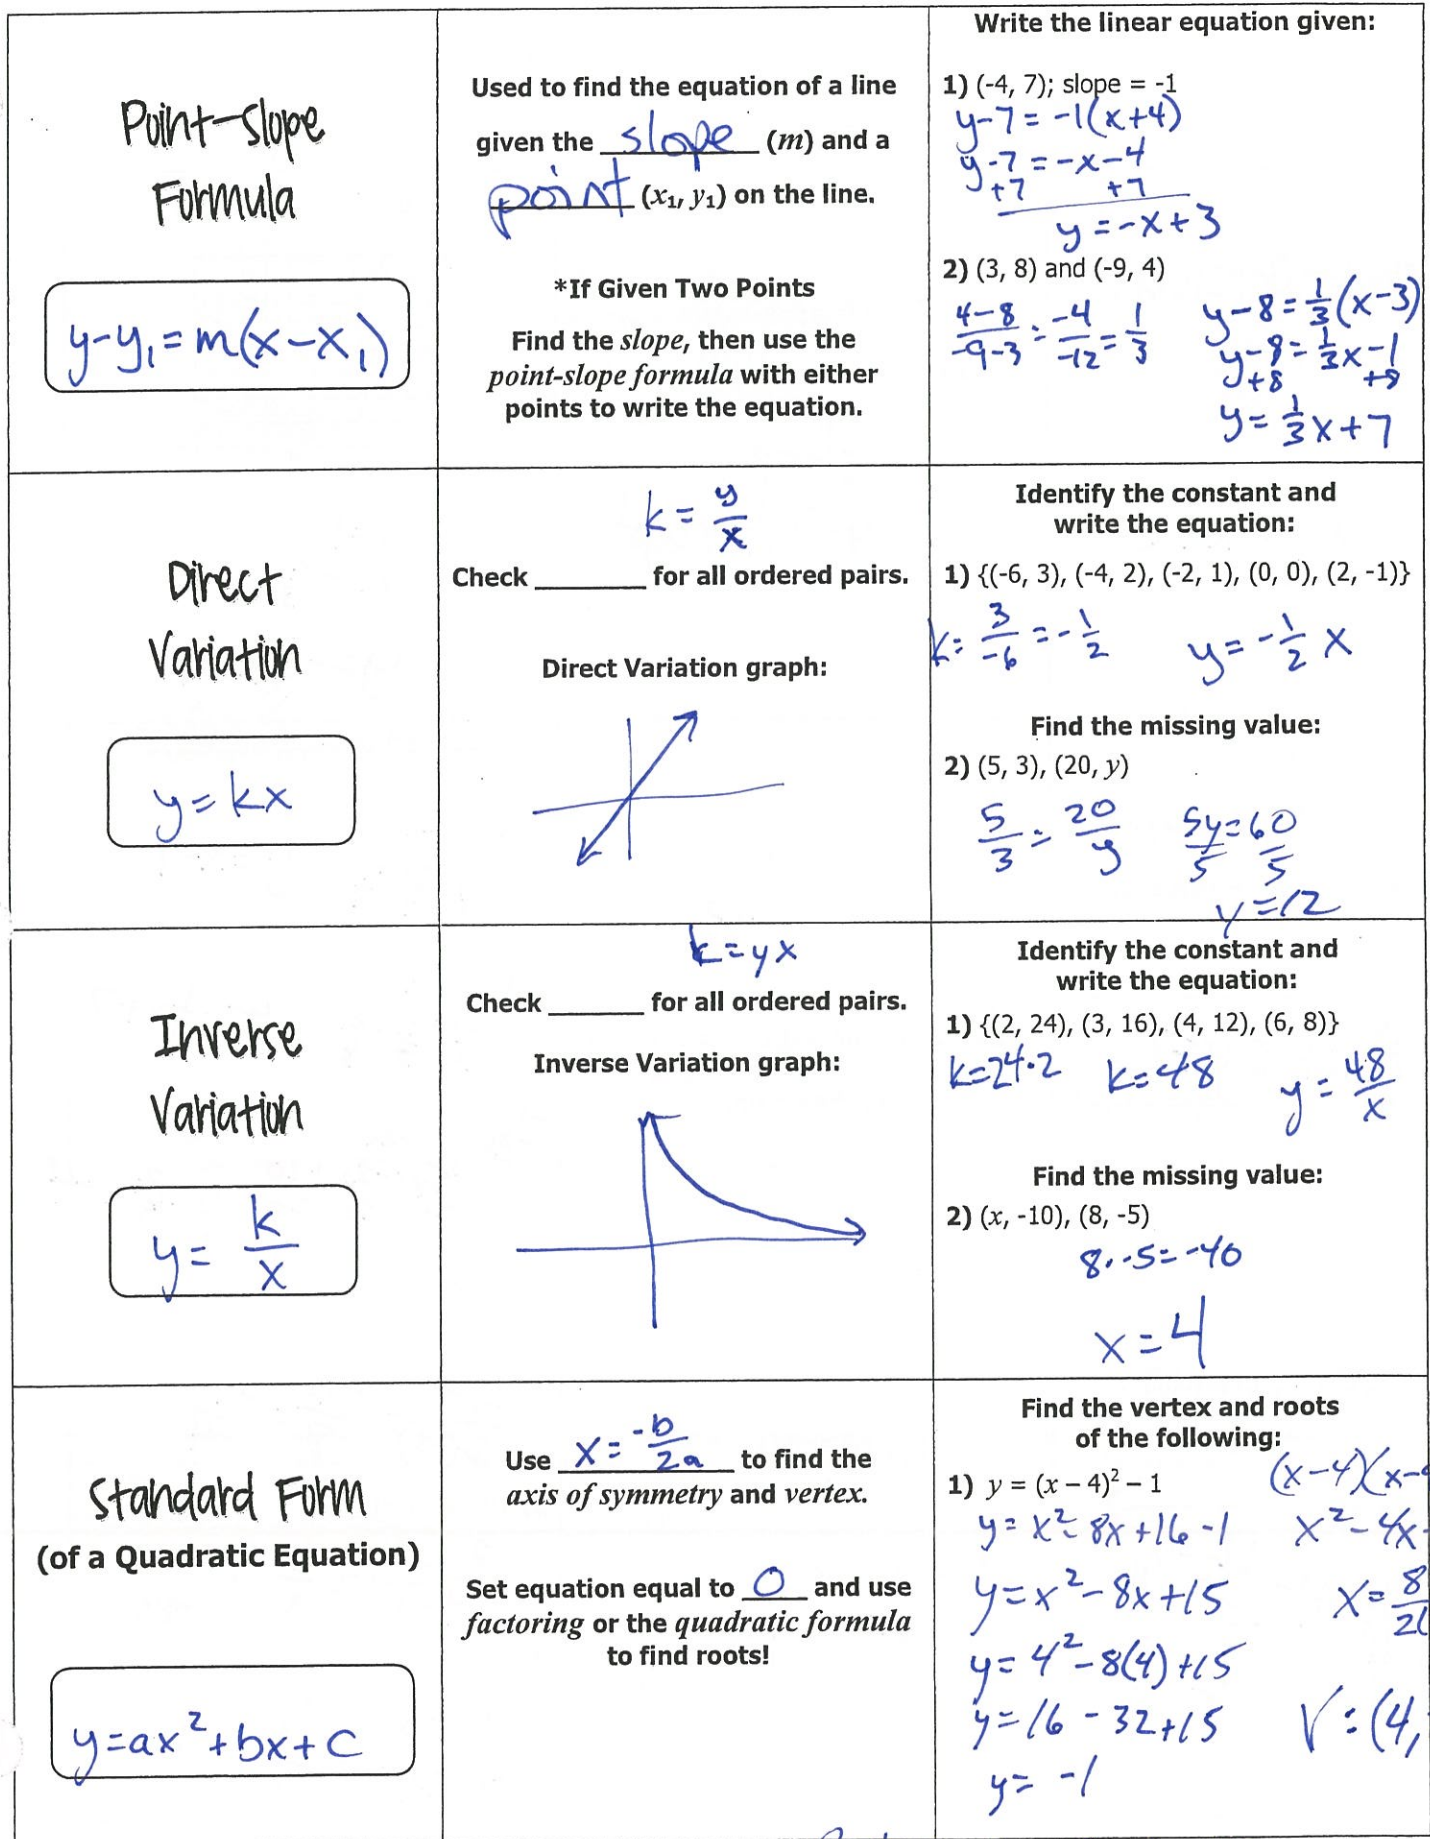 Point-Slope
Formula
y-y₁=m(x-x₁)
Used to find the equation of a line
given the slope (m) and a
point (x₁, y₁) on the line.
*If Given Two Points
Find the slope, then use the
point-slope formula with either
points to write the equation.
Write the linear equation given:
1) (-4, 7); slope = -1
y-7=-1(x+4)
y-7=-x-4
+7 +7
y=-x+3
2) (3, 8) and (-9, 4)
4-8/-9-3 = -4/-12 = 1/3
y-8=1/3(x-3)
y-8=1/3x-1
+8 +8
y=1/3x+7
Direct
Variation
y=kx
k = y/x
Check ______ for all ordered pairs.
Direct Variation graph:
Identify the constant and
write the equation:
1) {(-6, 3), (-4, 2), (-2, 1), (0, 0), (2, -1)}
k= 3/-6 = -1/2 y=-1/2 x
Find the missing value:
2) (5, 3), (20, y)
5/3 = 20/y
5y=60
5 5
y=12
Inverse
Variation
y= k/x
k=yx
Check ______ for all ordered pairs.
Inverse Variation graph:
Identify the constant and
write the equation:
1) {(2, 24), (3, 16), (4, 12), (6, 8)}
k=24·2 k=48 y=48/x
Find the missing value:
2) (x, -10), (8, -5)
8·-5=-40
x=4
Standard Form
(of a Quadratic Equation)
y=ax²+bx+c
Use x=-b/2a to find the
axis of symmetry and vertex.
Set equation equal to 0 and use
factoring or the quadratic formula
to find roots!
Find the vertex and roots
of the following:
1) y = (x – 4)² – 1
y=x²-8x+16-1
y=x²-8x+15
y=4²-8(4)+15
y=16-32+15
y=-1
(x-4)(x-
x²-4x
x=8/2(
V:(4,